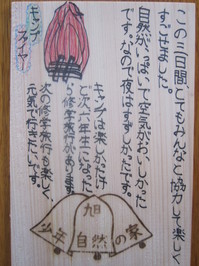 この三日間、とてもみんなと協力して楽しく
すごせました。
自然がいっぱいで空気がおいしかった
です。なので夜はすずしかったです。
キャンプ
ファイヤ
キャンプは楽しかったけ
ど次六年生になった
ら修学旅行があります。
次の修学旅行も楽しく、
元気で行きたいです。
旭
少年自然の家